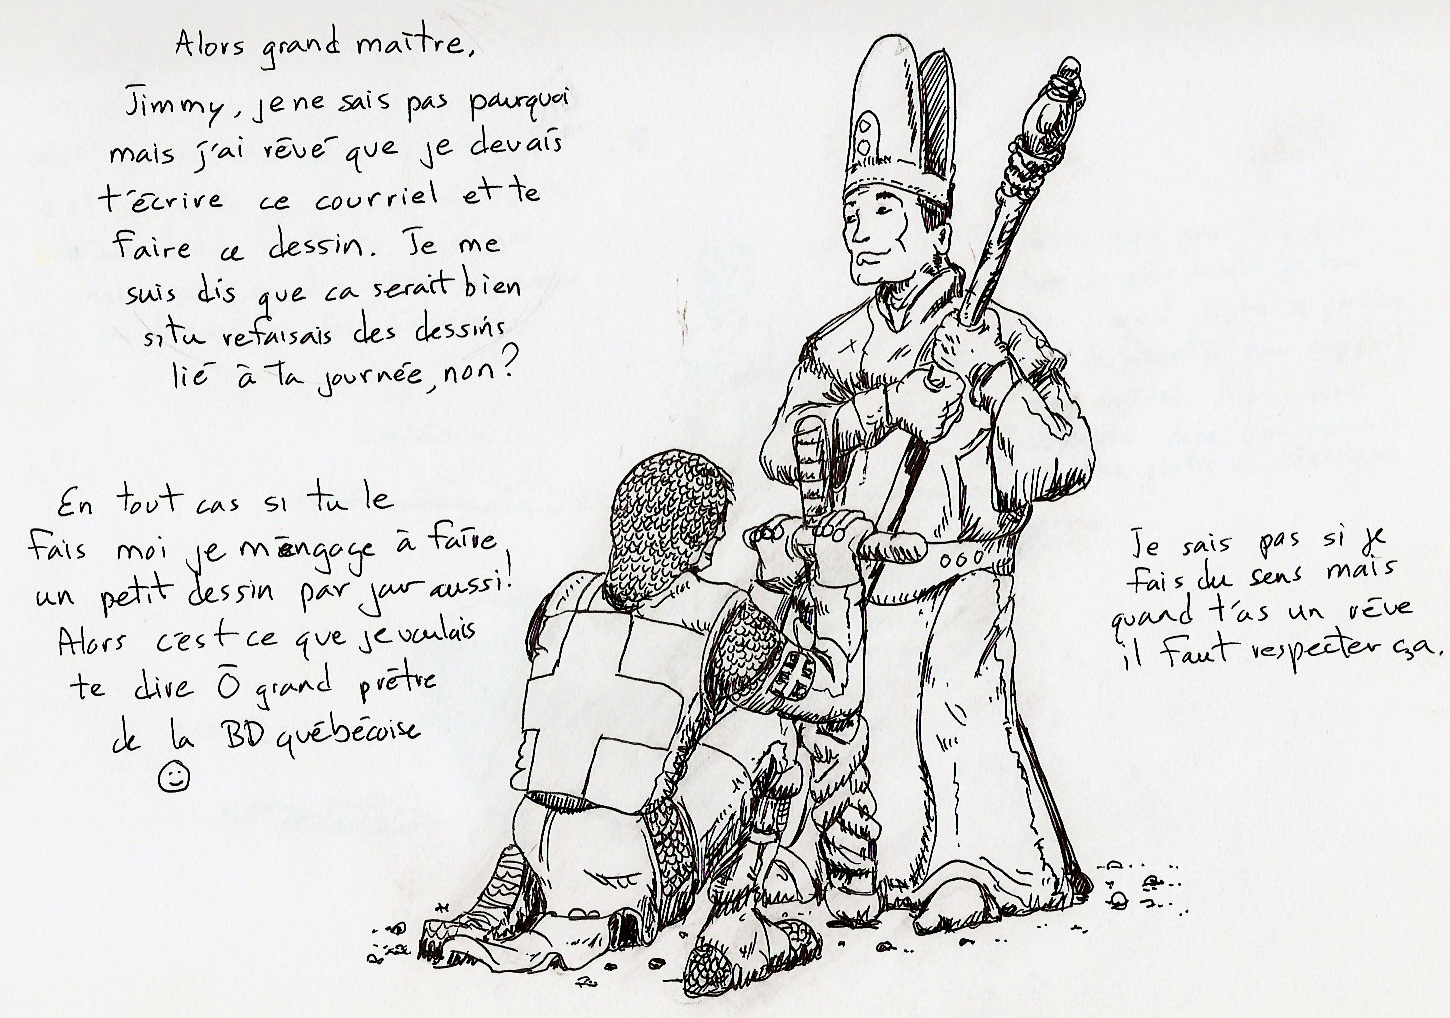 Alors grand maître,
Jimmy, je ne sais pas pourquoi
mais j'ai rêvé que je devais
t'écrire ce courriel et te
faire ce dessin. Je me
suis dis que ca serait bien
si tu refaisais des dessins
lié à ta journée, non?
En tout cas si tu le
fais moi je m'engage à faire,
un petit dessin par jour aussi!
Alors c'est ce que je voulais
te dire Ô grand prêtre
de la BD québécoise
Je sais pas si je
fais du sens mais
quand t'as un rêve
il faut respecter ça.